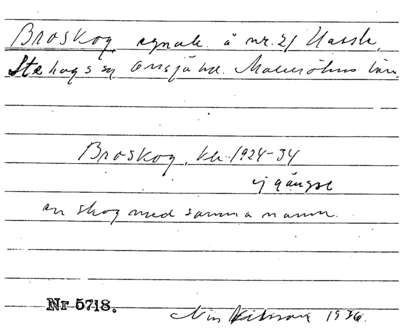 Broskog egnah. å nr. 21 Hassle,
Stehags sn Onsjö hd. Malmöhus län.
Broskog, kb. 1924-34
ej gängse
en skog med samma namn.
Nr 5718.
Nils 1936.